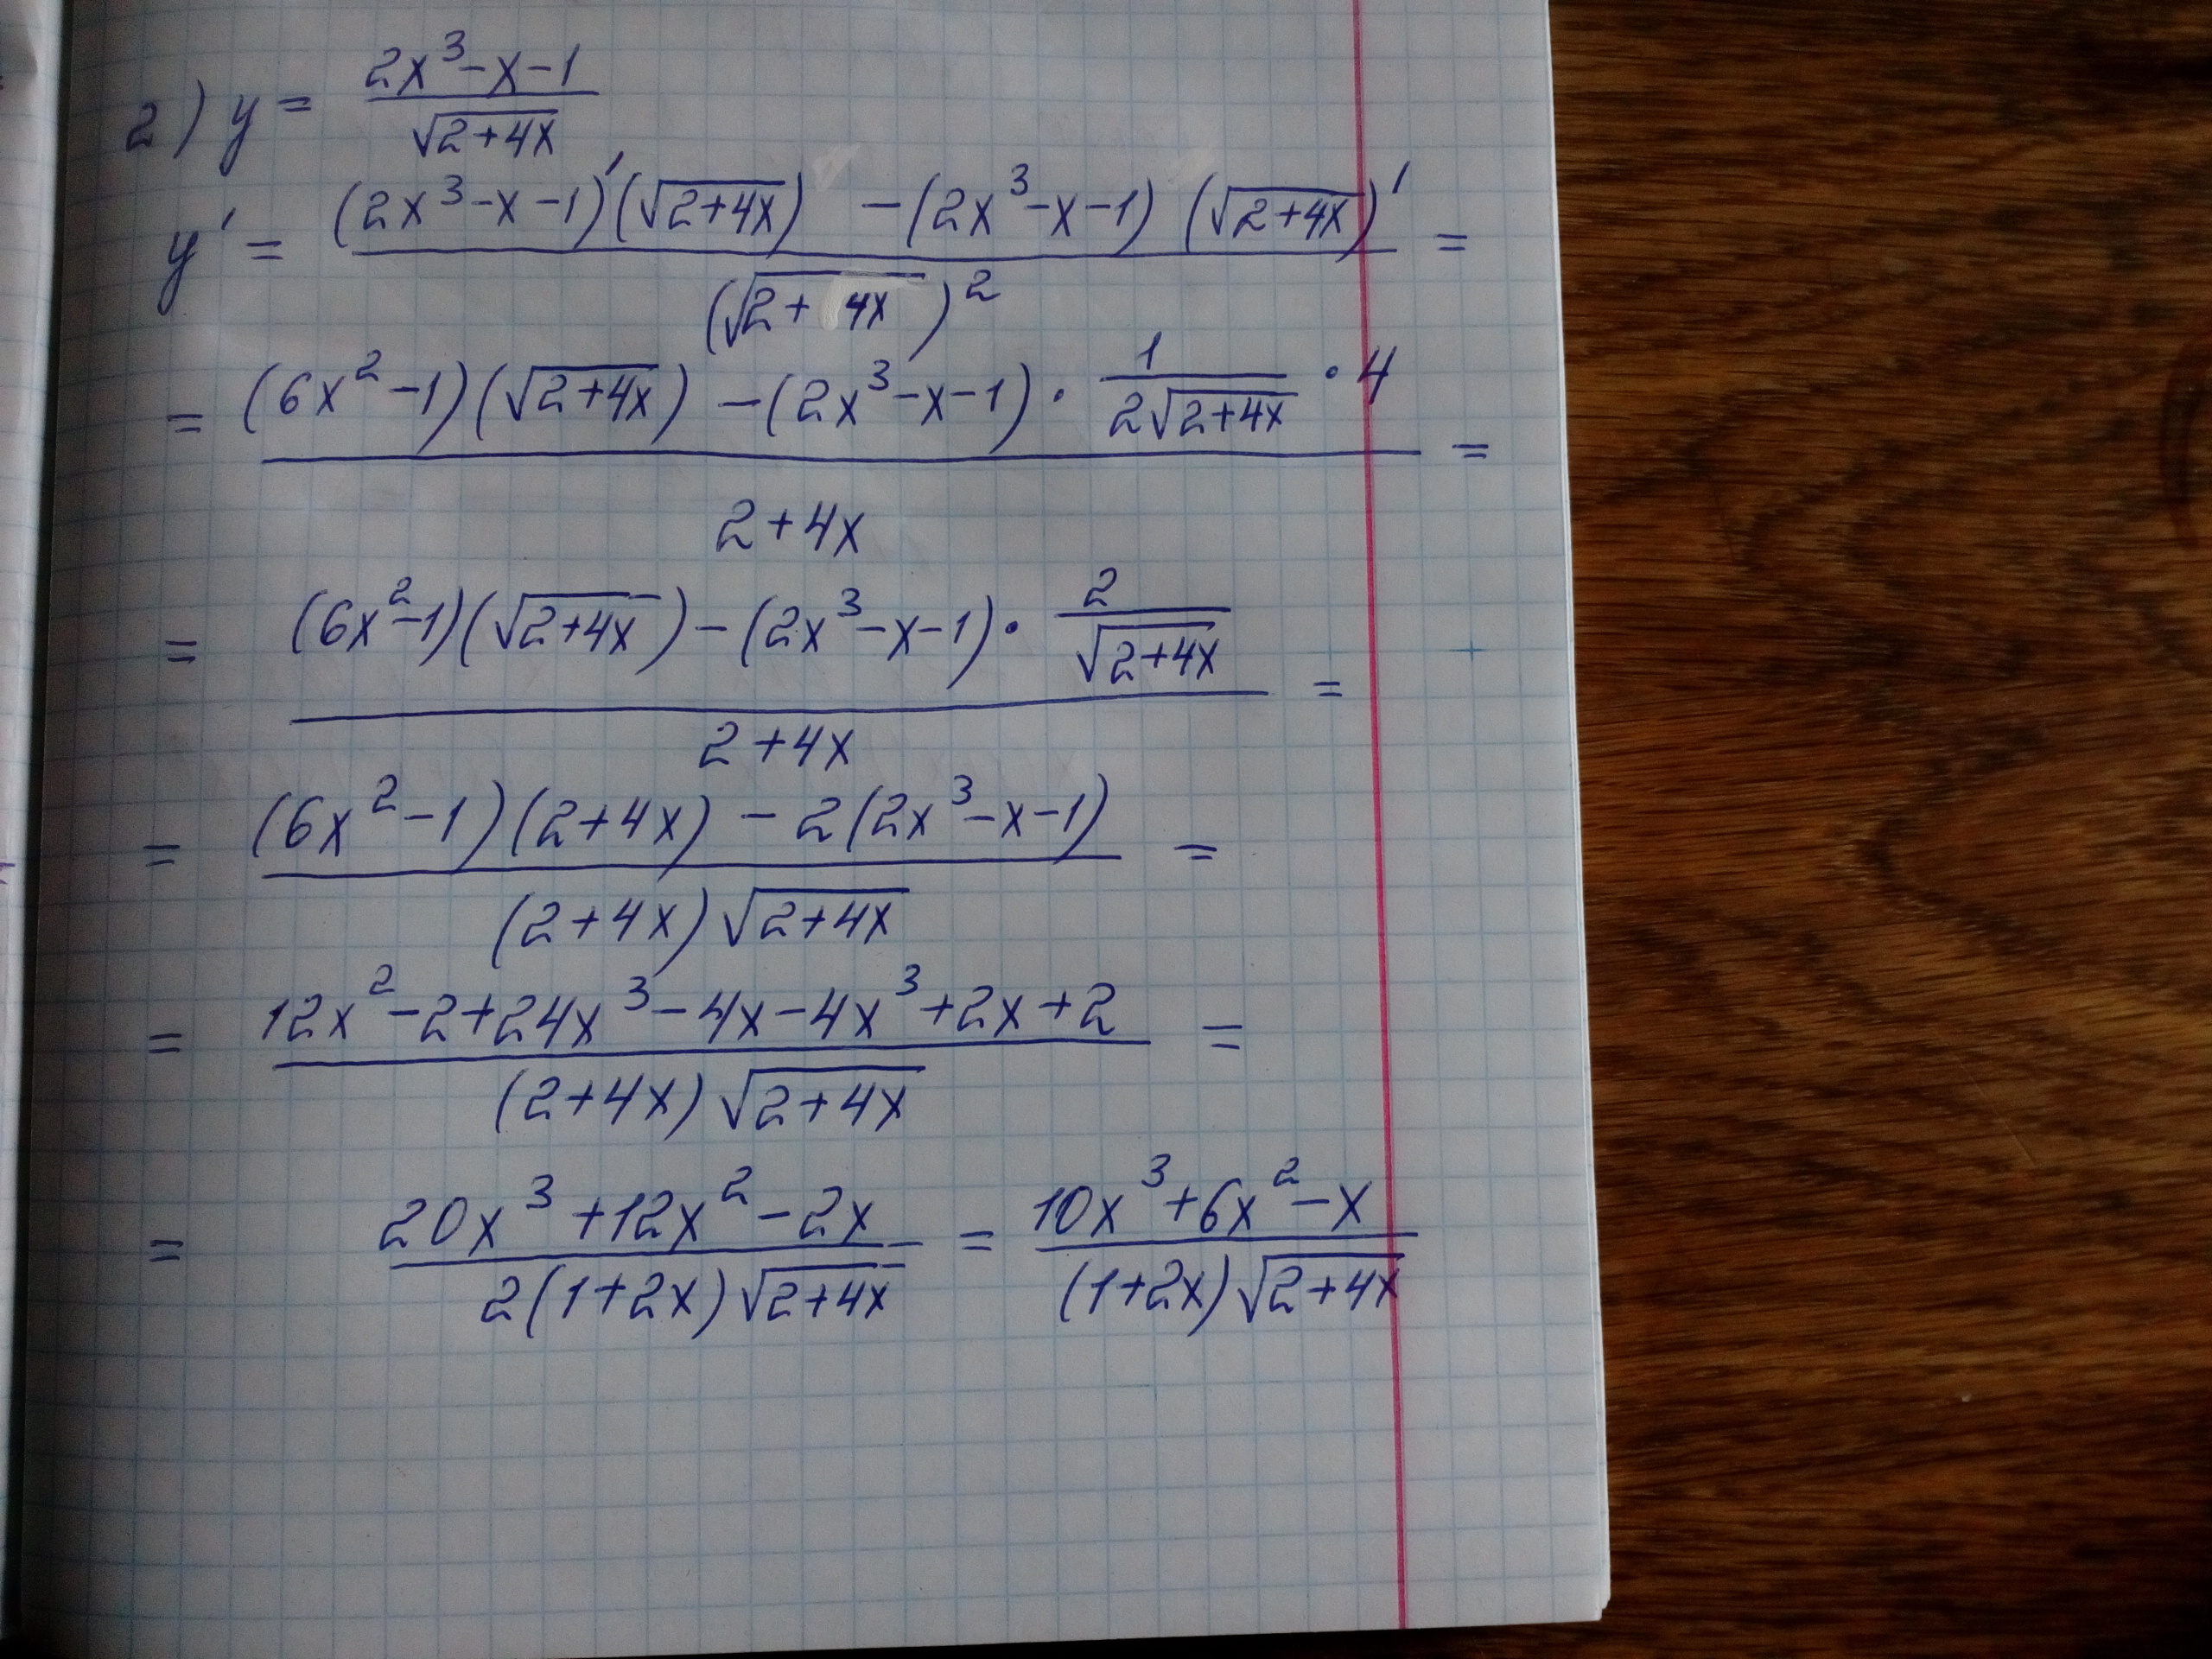 2) y = (2x³-x-1)/√(2+4x)
y' = ((2x³-x-1)'(√(2+4x)) - (2x³-x-1)(√(2+4x))')/(√(2+4x))² =
= ((6x²-1)(√(2+4x)) - (2x³-x-1)·1/(2√(2+4x))·4)/(2+4x) =
= ((6x²-1)(√(2+4x)) - (2x³-x-1)·2/√(2+4x))/(2+4x) =
= ((6x²-1)(2+4x) - 2(2x³-x-1))/((2+4x)√(2+4x)) =
= (12x²-2+24x³-4x-4x³+2x+2)/((2+4x)√(2+4x)) =
= (20x³+12x²-2x)/(2(1+2x)√(2+4x)) = (10x³+6x²-x)/((1+2x)√(2+4x))